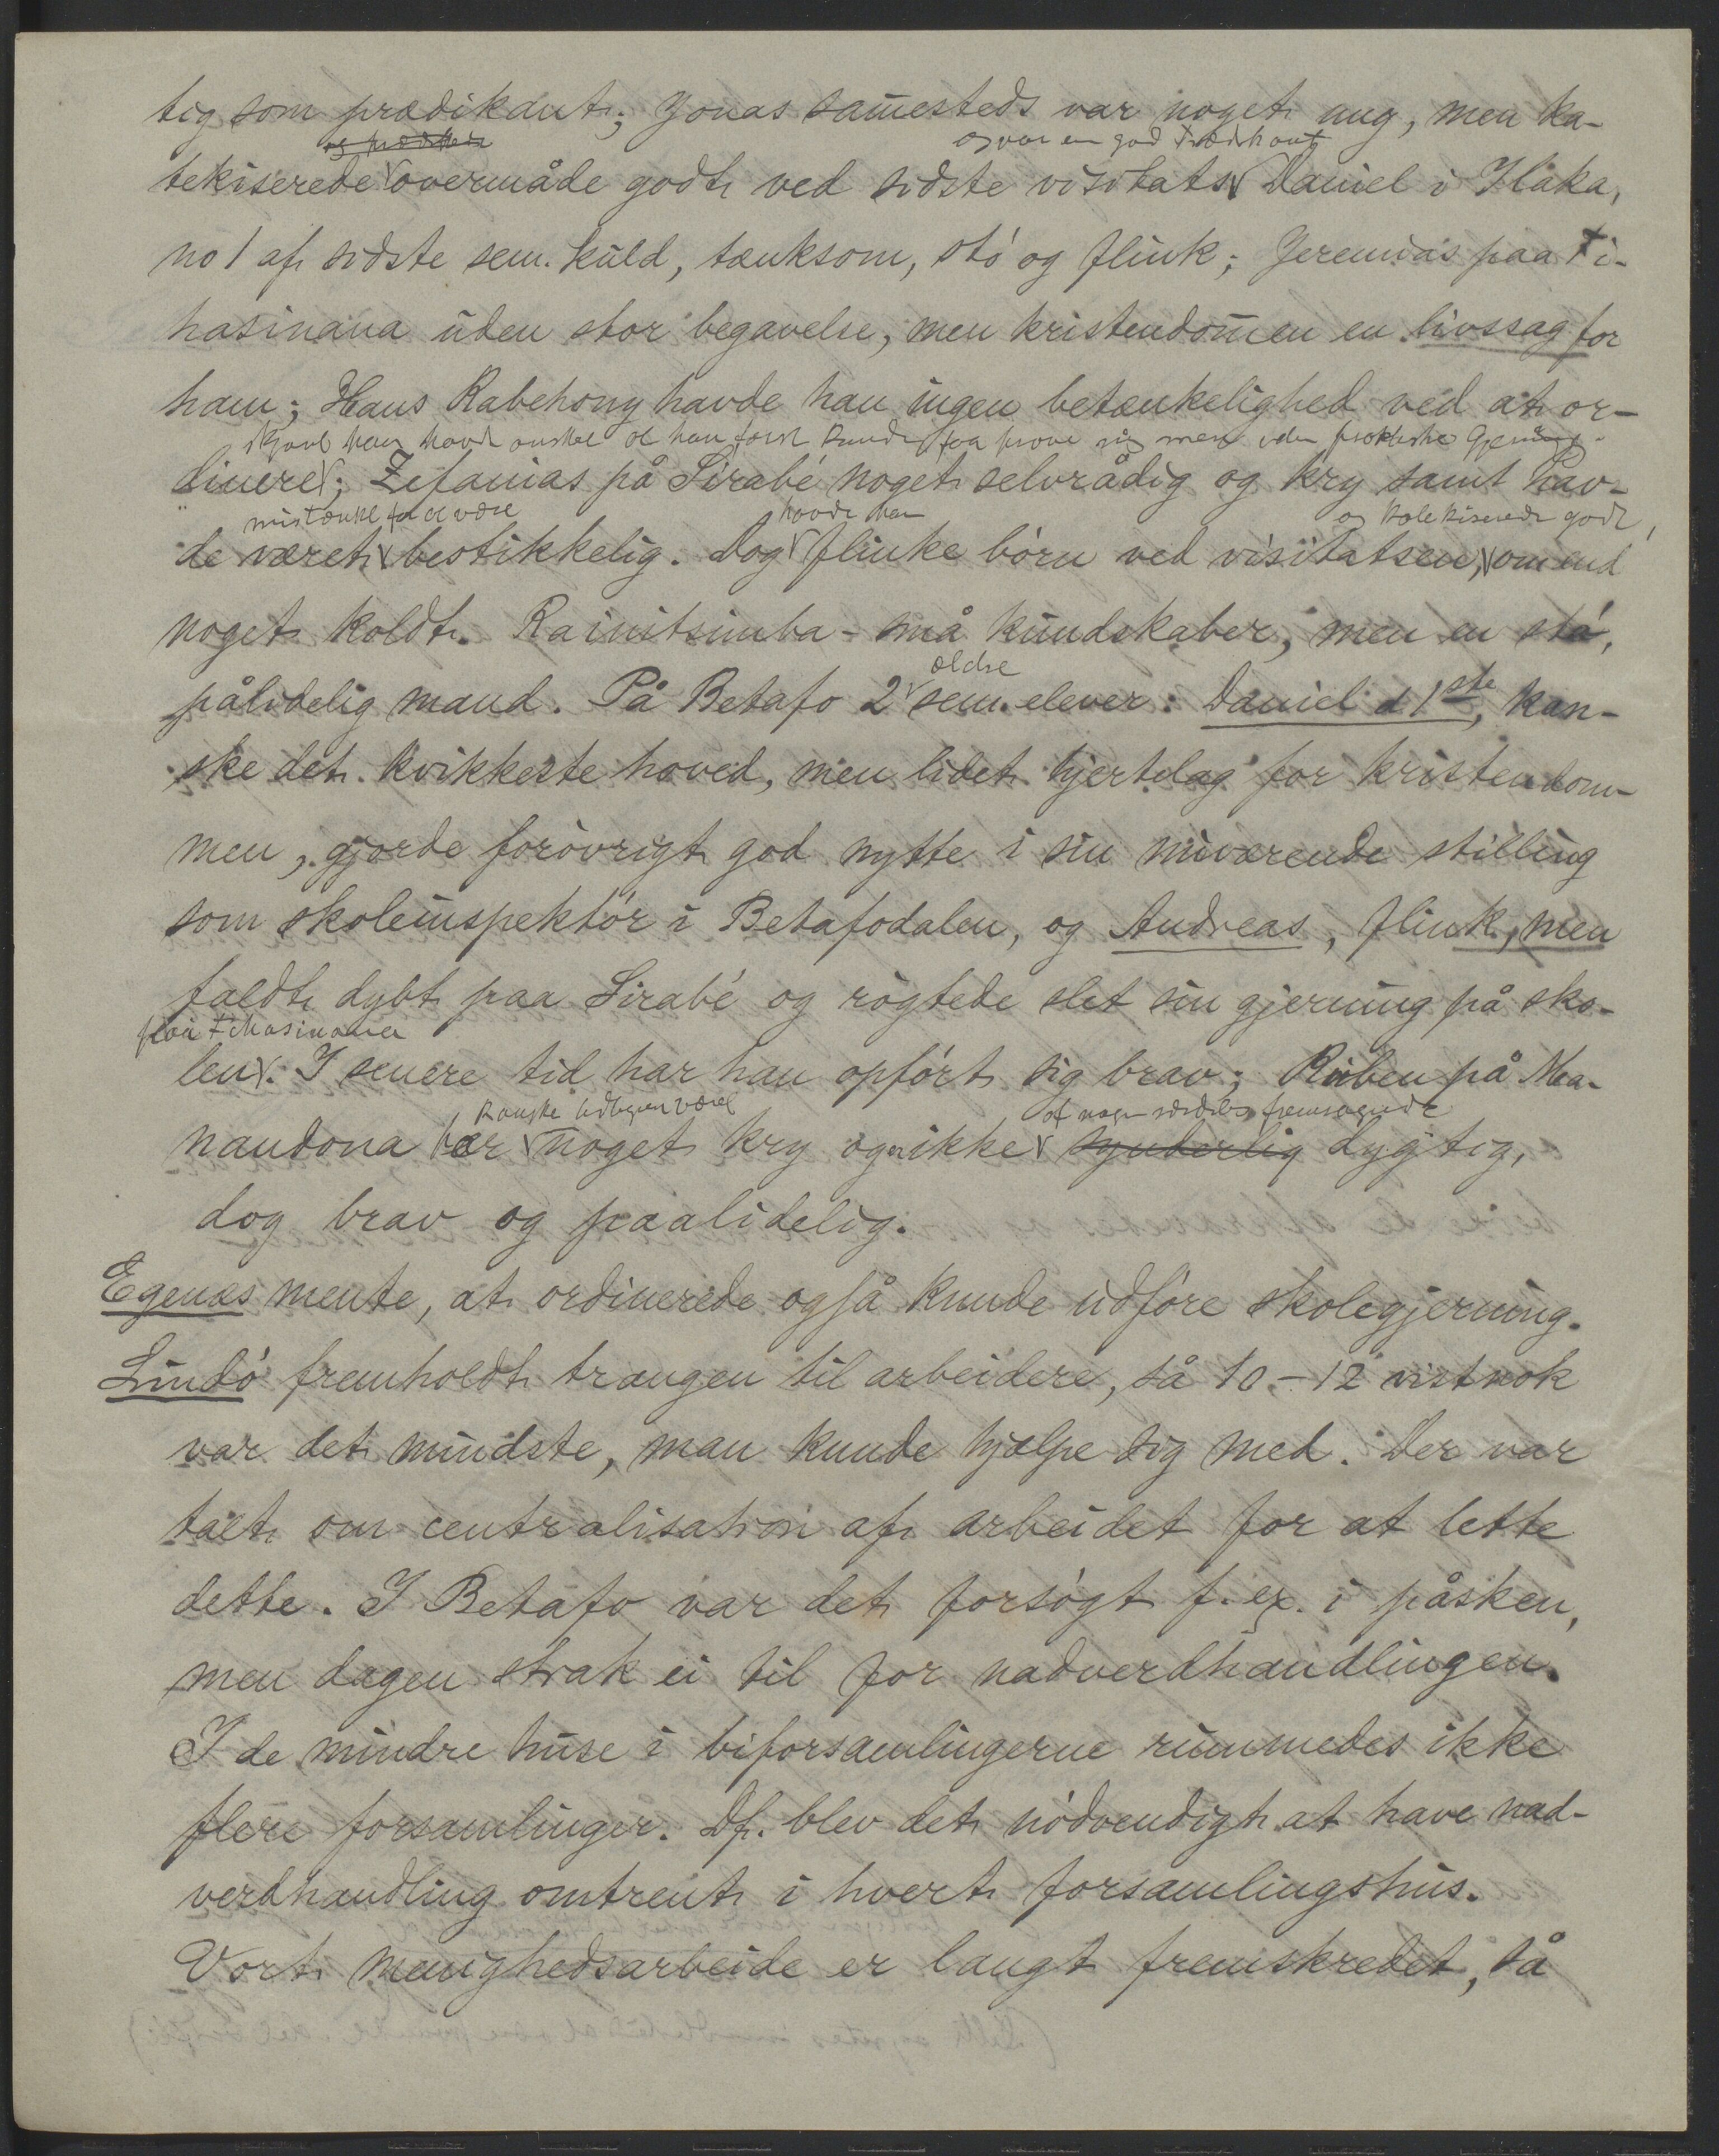 tig som prædikant; Jonas sammesteds var noget ung, men ka-
og prædikede
og var en god prædikant
tekiserede overmåde godt ved sidste visitats Daniel i Ilaka,
no 1 af sidste sem. kuld, tænksom, stö og flink; Jeremias paa Fi-
hasinana uden stor begavelse, men kristendommen en livssag for
ham; Hans Rabehony havde han ingen betænkelighed ved at or-
skjønt han havde ønsket at han først kunde faa prøve sig mer i den praktiske Gjerning.
dinere; Zefanias på Sirabé noget selvrådig og kry samt hav-
mistænkt for at være
havde han
og katekiserede godt,
de været bestikkelig. Dog flinke börn ved visitatsen, omend
noget koldt. Rainitsimba - små kundskaber, men en stö,
ældre
pålidelig mand. På Betafo 2 sem. elever: Daniel d 1ste, kan-
ske det kvikkeste hoved, men lidet hjertelag for kristendom-
men, gjorde forövrigt god nytte i sin nuværende stilling
som skoleinspektör i Betafodalen, og Andreas, flink, men
faldt dybt paa Sirabé og rögtede slet sin gjerning på sko-
paa Fihasinana
len. I senere tid har han opfört sig brav; Ruben på Ma-
kanske tidligere været
af nogen særdeles fremragende
nandona er noget kry og ikke synderlig dygtig,
dog brav og paalidelig.
Egenæs mente, at ordinerede også kunde udföre skolegjerning.
Lindö fremholdt trangen til arbeidere, så 10-12 vistnok
var det mindste, man kunde hjælpe sig med. Der var
talt om centralisation af arbeidet for at lette
dette. I Betafo var det forsögt f. ex. i påsken,
men dagen strak ei til for nadverdhandlingen.
I de mindre huse i biforsamlingerne rummedes ikke
flere forsamlinger. Df. blev det nödvendigt at have nad-
verdhandling omtrent i hvert forsamlingshus.
Vort menighedsarbeide er langt fremskredet, så